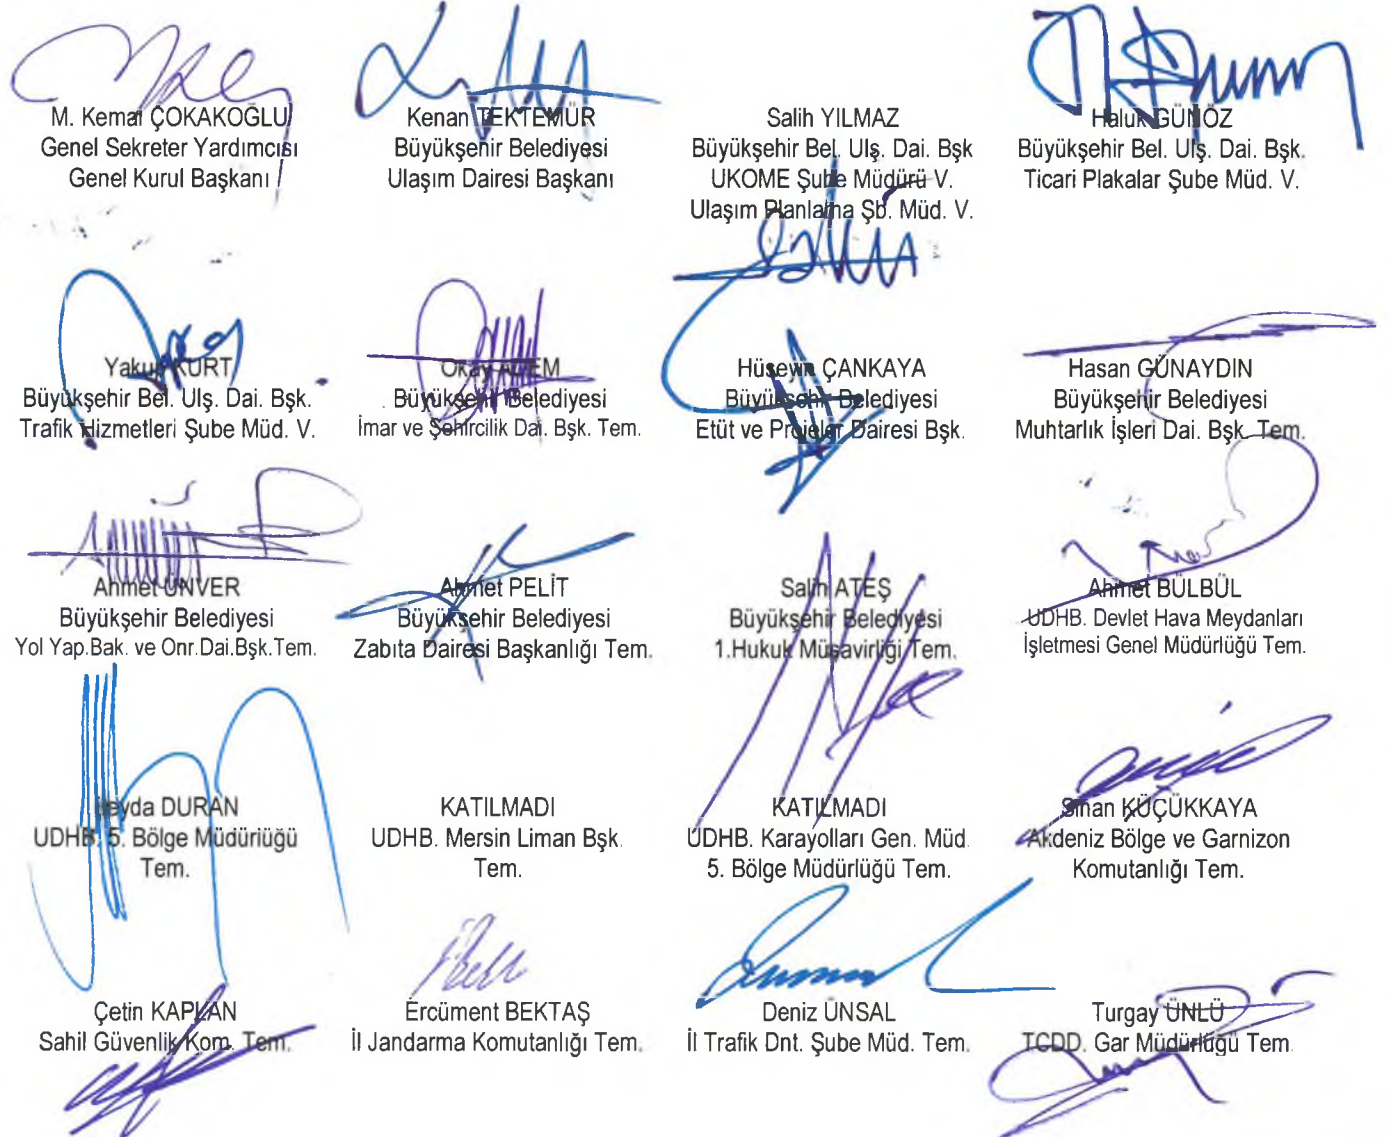 M. Kemal ÇOKAKOĞLU
Genel Sekreter Yardımcısı
Genel Kurul Başkanı
Kenan TEKTEMÜR
Büyükşehir Belediyesi
Ulaşım Dairesi Başkanı
Salih YILMAZ
Büyükşehir Bel. Ulş. Dai. Bşk
UKOME Şube Müdürü V.
Ulaşım Planlama Şb. Müd. V.
Haluk GÜNÖZ
Büyükşehir Bel. Ulş. Dai. Bşk.
Ticari Plakalar Şube Müd. V.
Yakup KURT
Büyükşehir Bel. Ulş. Dai. Bşk.
Trafik Hizmetleri Şube Müd. V.
Okay
Büyükşehir Belediyesi
İmar ve Şehircilik Dai. Bşk. Tem.
Hüseyin ÇANKAYA
Büyükşehir Belediyesi
Etüt ve Projeler Dairesi Bşk.
Hasan GÜNAYDIN
Büyükşehir Belediyesi
Muhtarlık İşleri Dai. Bşk. Tem.
Ahmet ÜNVER
Büyükşehir Belediyesi
Yol Yap.Bak. ve Onr.Dai.Bşk.Tem.
Ahmet PELİT
Büyükşehir Belediyesi
Zabıta Dairesi Başkanlığı Tem.
Salih ATEŞ
Büyükşehir Belediyesi
1.Hukuk Müşavirliği Tem.
Ahmet BÜLBÜL
UDHB. Devlet Hava Meydanları
İşletmesi Genel Müdürlüğü Tem.
DURAN
UDHB. 5. Bölge Müdürlüğü
Tem.
KATILMADI
UDHB. Mersin Liman Bşk.
Tem.
KATILMADI
UDHB. Karayolları Gen. Müd.
5. Bölge Müdürlüğü Tem.
Sinan KÜÇÜKKAYA
Akdeniz Bölge ve Garnizon
Komutanlığı Tem.
Çetin KAPLAN
Sahil Güvenlik Kom. Tem.
Ercüment BEKTAŞ
İl Jandarma Komutanlığı Tem.
Deniz ÜNSAL
İl Trafik Dnt. Şube Müd. Tem.
Turgay ÜNLÜ
TCDD. Gar Müdürlüğü Tem.